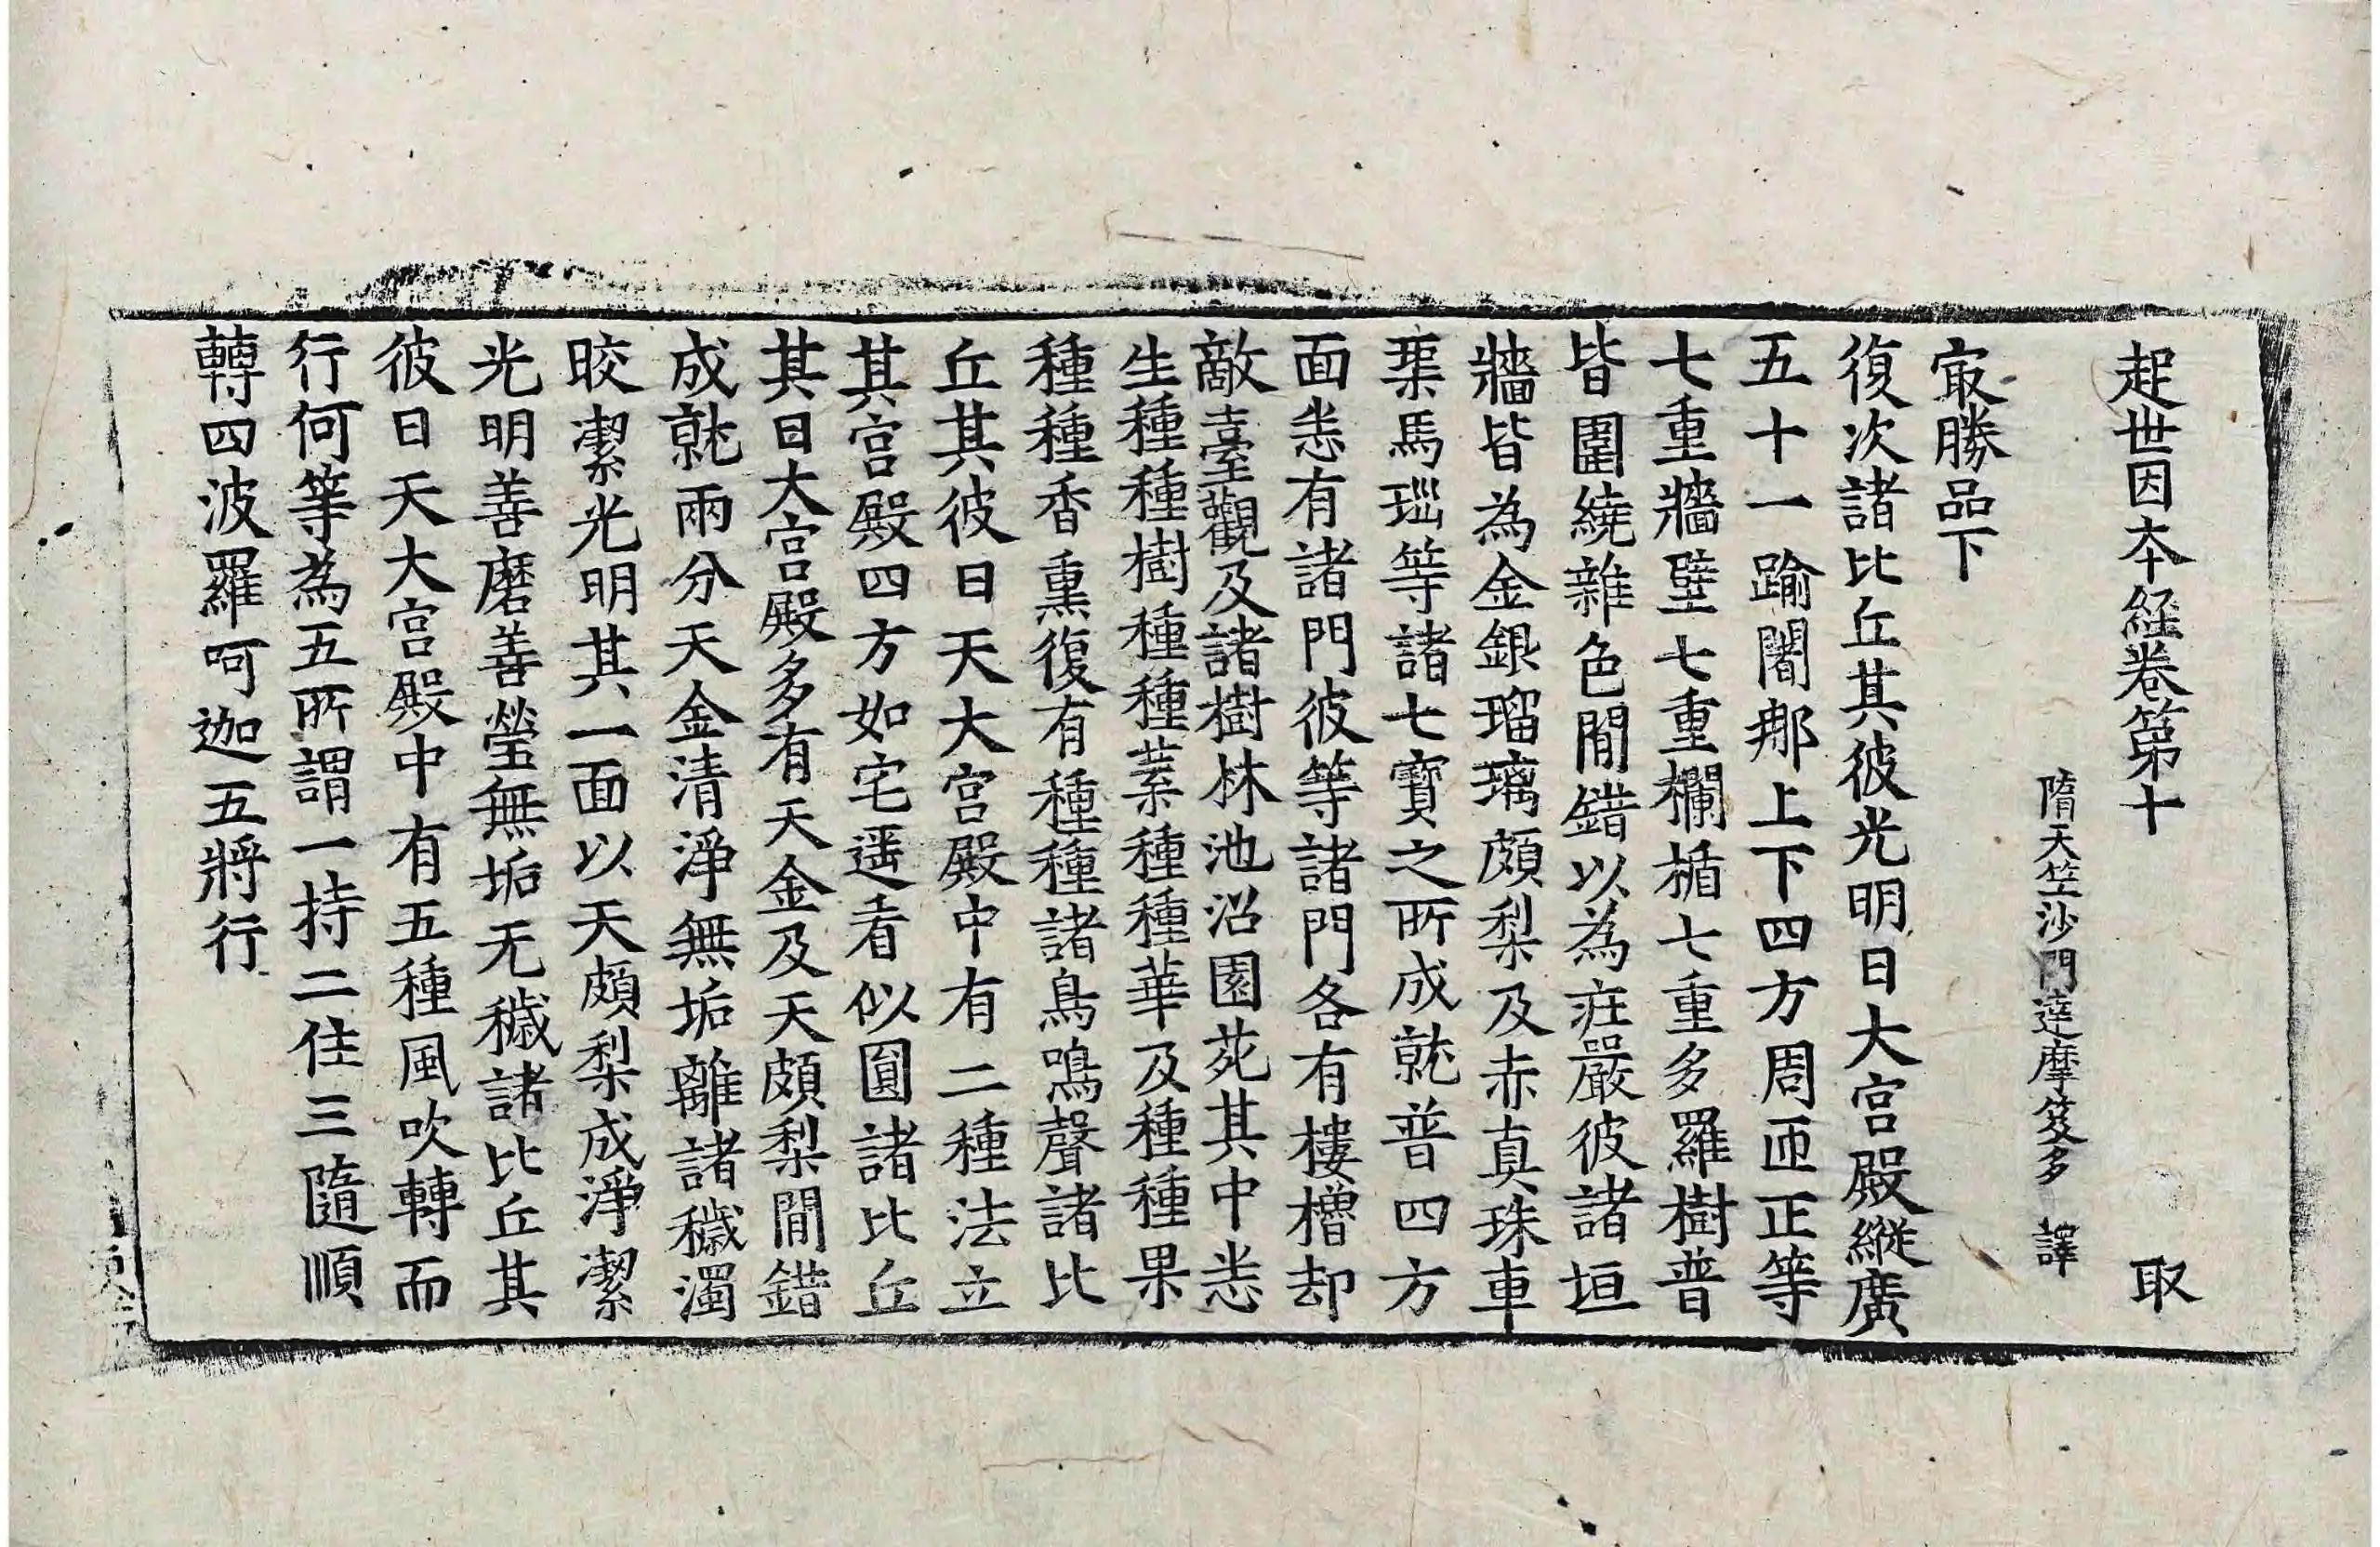 起世因本経卷第十 取
隋天竺沙門達摩笈多 譯
㝡勝品下
復次諸比丘其彼光明日大宫殿縱廣
五十一踰闍那上下四方周匝正等
七重牆壁七重欄楯七重多羅樹普
皆圍繞雜色間錯以為莊嚴彼諸垣
牆皆為金銀瑠璃頗梨及赤真珠車
𤦲馬瑙等諸七寶之所成就普四方
面悉有諸門彼等諸門各有樓櫓却
敵臺觀及諸樹林池沼園苑其中悉
生種種樹種種葉種種華及種種果
種種香熏復有種種諸鳥鳴聲諸比
丘其彼日天大宫殿中有二種法立
其宫殿四方如宅遥看似圓諸比丘
其日大宫殿多有天金及天頗梨間錯
成就兩分天金清淨無垢離諸穢濁
晈潔光明其一面以天頗梨成淨潔
光明善磨善瑩無垢无穢諸比丘其
彼日天大宫殿中有五種風吹轉而
行何等為五所謂一持二住三隨順
轉四波羅呵迦五將行